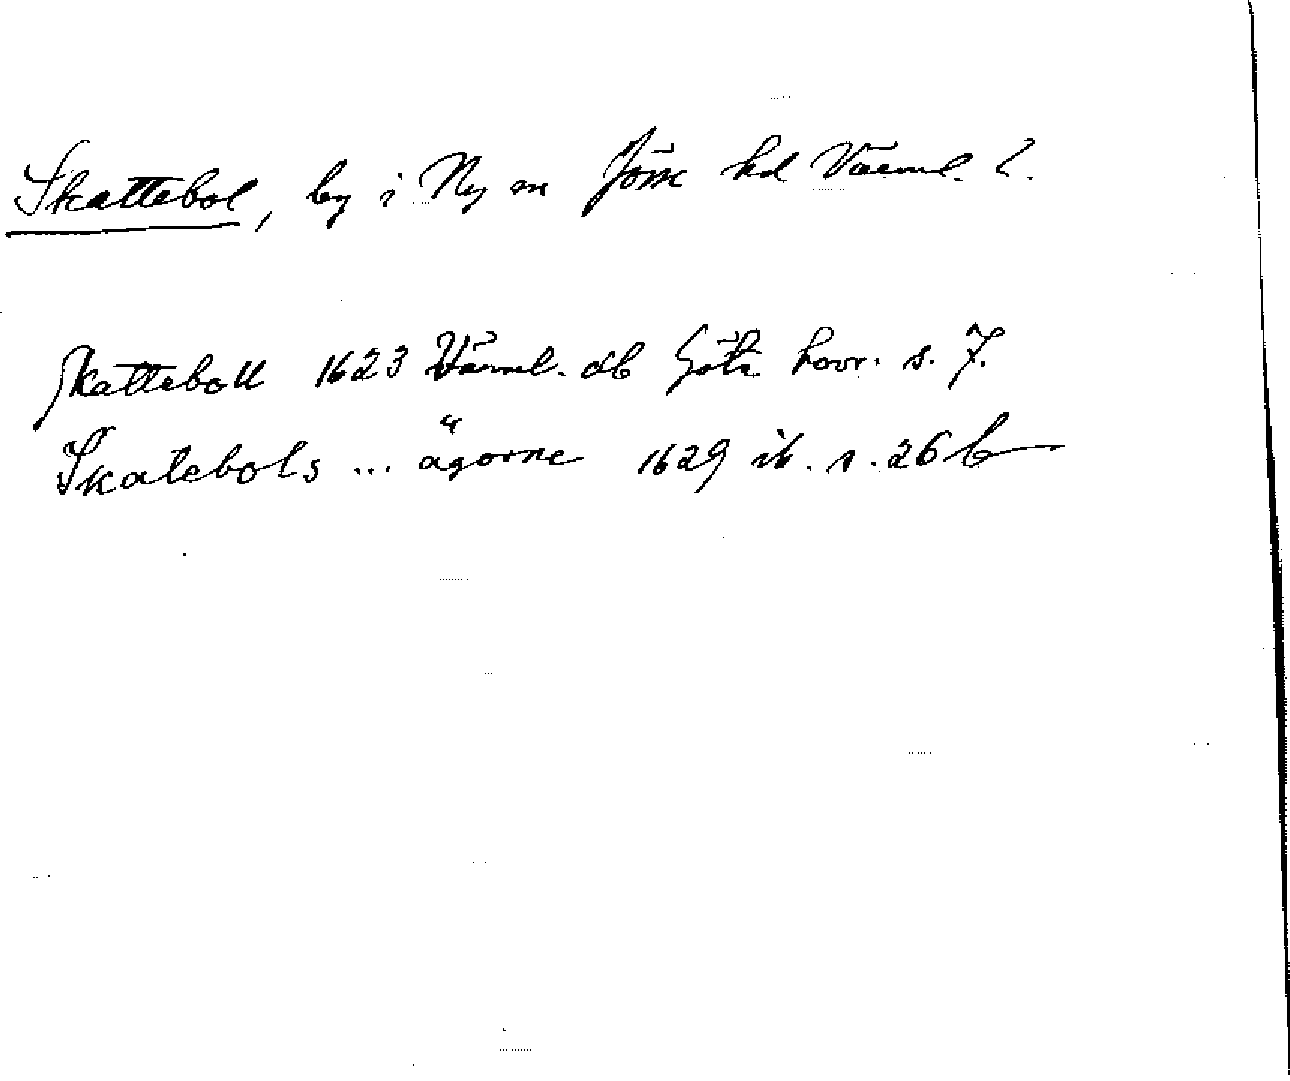 Skattebol, by i Ny sn Jösse hd Värml. l.
Skatteboll 1623 Värml. db Göta hovr. s. 7.
Skatebols ... ägorne 1629 ib. s. 26 b